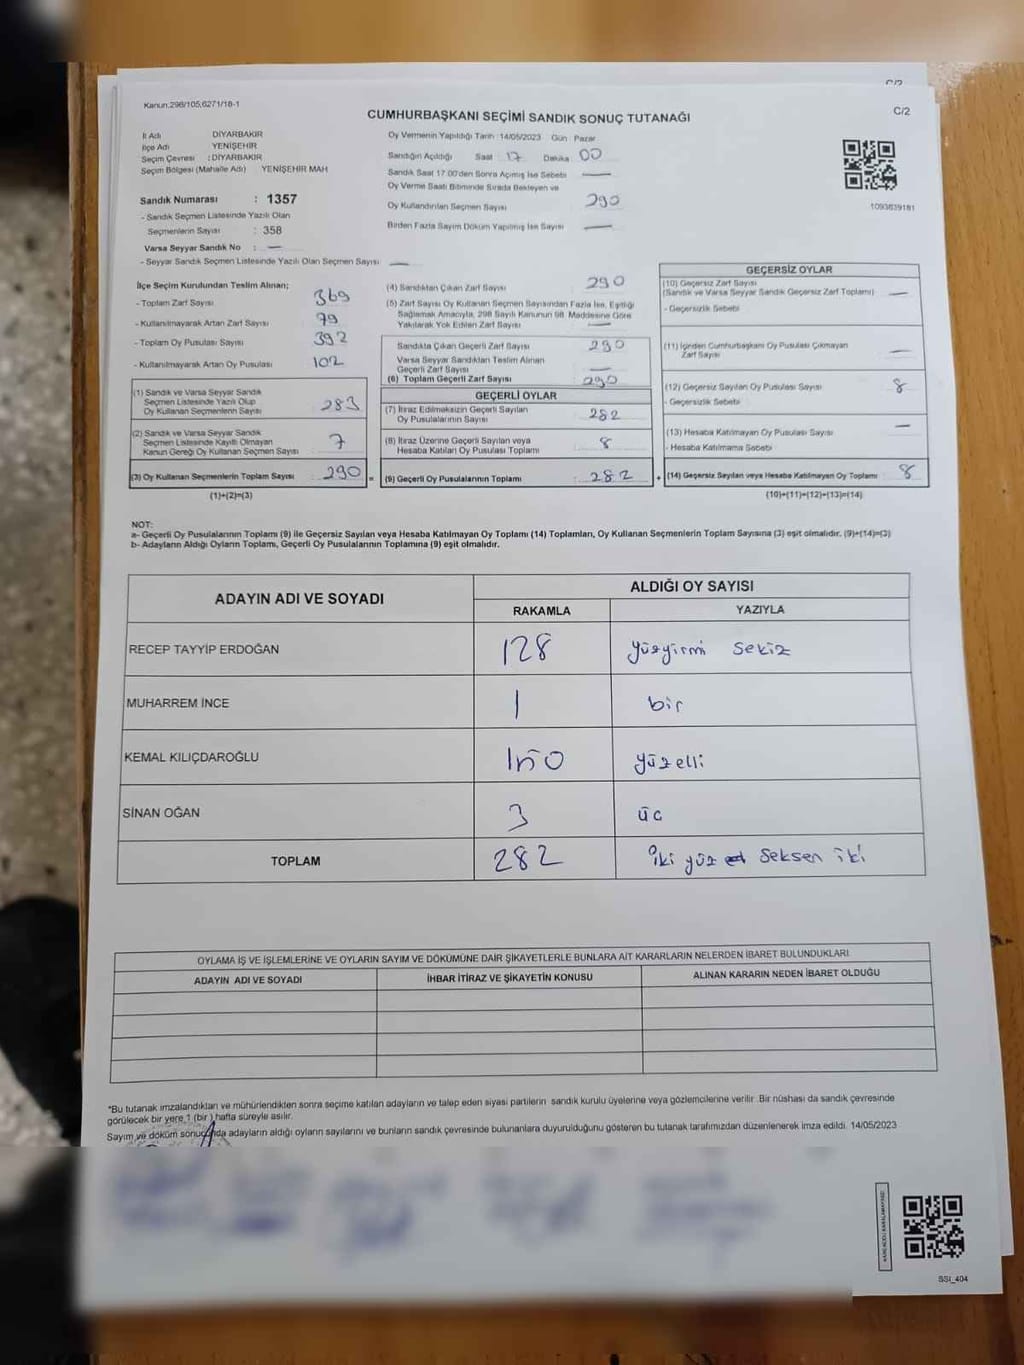 C/2
Kanun:298/105,6271/18-1
CUMHURBAŞKANI SEÇİMİ SANDIK SONUÇ TUTANAĞI
C/2
İl Adı DİYARBAKIR
İlçe Adı YENİŞEHİR
Seçim Çevresi : DİYARBAKIR
Seçim Bölgesi (Mahalle Adı) YENİŞEHİR MAH
Sandık Numarası : 1357
- Sandık Seçmen Listesinde Yazılı Olan
Seçmenlerin Sayısı : 358
Varsa Seyyar Sandık No : —
- Seyyar Sandık Seçmen Listesinde Yazılı Olan Seçmen Sayısı —
Oy Vermenin Yapıldığı Tarih :14/05/2023 Gün : Pazar
Sandığın Açıldığı Saat 17 Dakika 00
Sandık Saat 17:00'den Sonra Açılmış İse Sebebi —
Oy Verme Saati Bitiminde Sırada Bekleyen ve
Oy Kullandırılan Seçmen Sayısı 290
Birden Fazla Sayım Döküm Yapılmış İse Sayısı —
1093839181
İlçe Seçim Kurulundan Teslim Alınan;
- Toplam Zarf Sayısı 369
- Kullanılmayarak Artan Zarf Sayısı 79
- Toplam Oy Pusulası Sayısı 392
- Kullanılmayarak Artan Oy Pusulası 102
(1) Sandık ve Varsa Seyyar Sandık
Seçmen Listesinde Yazılı Olup
Oy Kullanan Seçmenlerin Sayısı 283
(2) Sandık ve Varsa Seyyar Sandık
Seçmen Listesinde Kayıtlı Olmayan
Kanun Gereği Oy Kullanan Seçmen Sayısı 7
(3) Oy Kullanan Seçmenlerin Toplam Sayısı 290 =
(1)+(2)=(3)
(4) Sandıktan Çıkan Zarf Sayısı 290
(5) Zarf Sayısı Oy Kullanan Seçmen Sayısından Fazla İse, Eşitliği
Sağlamak Amacıyla, 298 Sayılı Kanunun 98. Maddesine Göre
Yakılarak Yok Edilen Zarf Sayısı —
Sandıkta Çıkan Geçerli Zarf Sayısı 290
Varsa Seyyar Sandıktan Teslim Alınan
Geçerli Zarf Sayısı —
(6) Toplam Geçerli Zarf Sayısı : 290
GEÇERLİ OYLAR
(7) İtiraz Edilmeksizin Geçerli Sayılan
Oy Pusulalarının Sayısı : 282
(8) İtiraz Üzerine Geçerli Sayılan veya
Hesaba Katılan Oy Pusulası Toplamı : 8
(9) Geçerli Oy Pusulalarının Toplamı : 282 +
GEÇERSİZ OYLAR
(10) Geçersiz Zarf Sayısı
(Sandık ve Varsa Seyyar Sandık Geçersiz Zarf Toplamı) —
- Geçersizlik Sebebi
(11) İçinden Cumhurbaşkanı Oy Pusulası Çıkmayan
Zarf Sayısı —
(12) Geçersiz Sayılan Oy Pusulası Sayısı 8
- Geçersizlik Sebebi
(13) Hesaba Katılmayan Oy Pusulası Sayısı —
- Hesaba Katılmama Sebebi
(14) Geçersiz Sayılan veya Hesaba Katılmayan Oy Toplamı 8
(10)+(11)+(12)+(13)=(14)
NOT:
a- Geçerli Oy Pusulalarının Toplamı (9) ile Geçersiz Sayılan veya Hesaba Katılmayan Oy Toplamı (14) Toplamları, Oy Kullanan Seçmenlerin Toplam Sayısına (3) eşit olmalıdır. (9)+(14)=(3)
b- Adayların Aldığı Oyların Toplamı, Geçerli Oy Pusulalarının Toplamına (9) eşit olmalıdır.
ADAYIN ADI VE SOYADI ALDIĞI OY SAYISI
RAKAMLA YAZIYLA
RECEP TAYYİP ERDOĞAN 128 yüzyirmi sekiz
MUHARREM İNCE 1 bir
KEMAL KILIÇDAROĞLU 150 yüzelli
SİNAN OĞAN 3 üc
TOPLAM 282 iki yüz seksen iki
OYLAMA İŞ VE İŞLEMLERİNE VE OYLARIN SAYIM VE DÖKÜMÜNE DAİR ŞİKAYETLERLE BUNLARA AİT KARARLARIN NELERDEN İBARET BULUNDUKLARI
ADAYIN ADI VE SOYADI İHBAR İTİRAZ VE ŞİKAYETİN KONUSU ALINAN KARARIN NEDEN İBARET OLDUĞU
*Bu tutanak imzalandıktan ve mühürlendikten sonra seçime katılan adayların ve talep eden siyasi partilerin sandık kurulu üyelerine veya gözlemcilerine verilir. Bir nüshası da sandık çevresinde
görülecek bir yere 1 (bir ) hafta süreyle asılır.
Sayım ve döküm sonucunda adayların aldığı oyların sayılarını ve bunların sandık çevresinde bulunanlara duyurulduğunu gösteren bu tutanak tarafımızdan düzenlenerek imza edildi. 14/05/2023
SSI_404